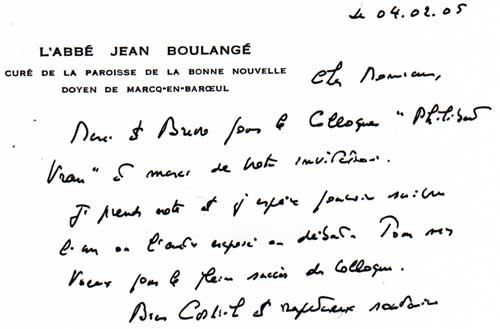 le 04.02.05
L'ABBÉ JEAN BOULANGÉ
CURÉ DE LA PAROISSE DE LA BONNE NOUVELLE
DOYEN DE MARCQ-EN-BARŒUL
Cher Monsieur,
Merci et Bravo pour le Colloque "Philibert
Vrau" et merci de votre invitation.
Je prends note et j'espère pouvoir suivre
l'un ou l'autre exposé ou débat. Tous mes
Voeux pour le plein succès du Colloque.
Bien Cordial et respectueux